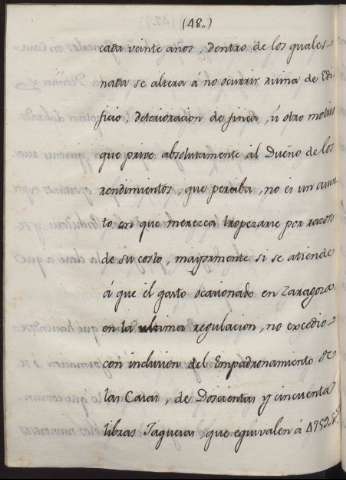 (48.)
cada veinte años, dentro de los quales
nada se altera á no ocurrir ruina de Edi
ficio, deterioracion de finca, ú otro motivo
que prive absolutamente al Dueño de los
rendimientos, que percibia, no es un asun
to en que merezca tropezarse por razon
de su costo, mayormente si se atiende
á que el gasto ocasionado en Zaragoza
en la ultima regulacion, no excedió
con inclusion del Empadronamiento de
las Casas, de Doscientas y cincuenta
libras Jaquesas, que equivalen á